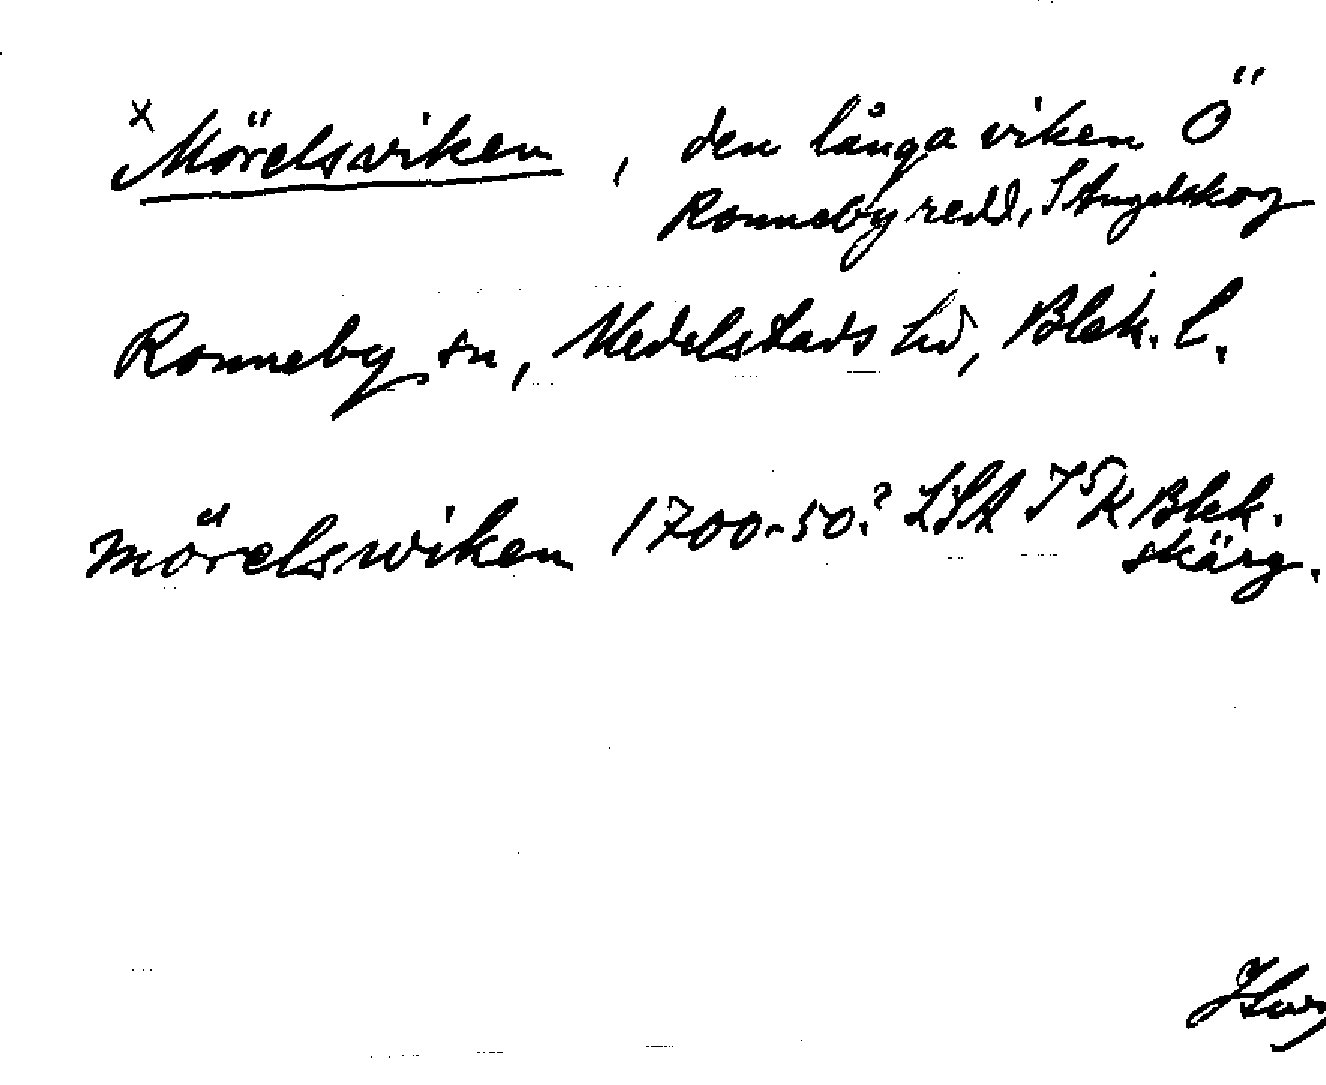 x Mörelsviken, den långa viken Ö
Ronneby redd, S Angelskog
Ronneby sn, Medelstads hd, Blek. l.
mörelswiken 1700-50? LSA Blek.
skärg.